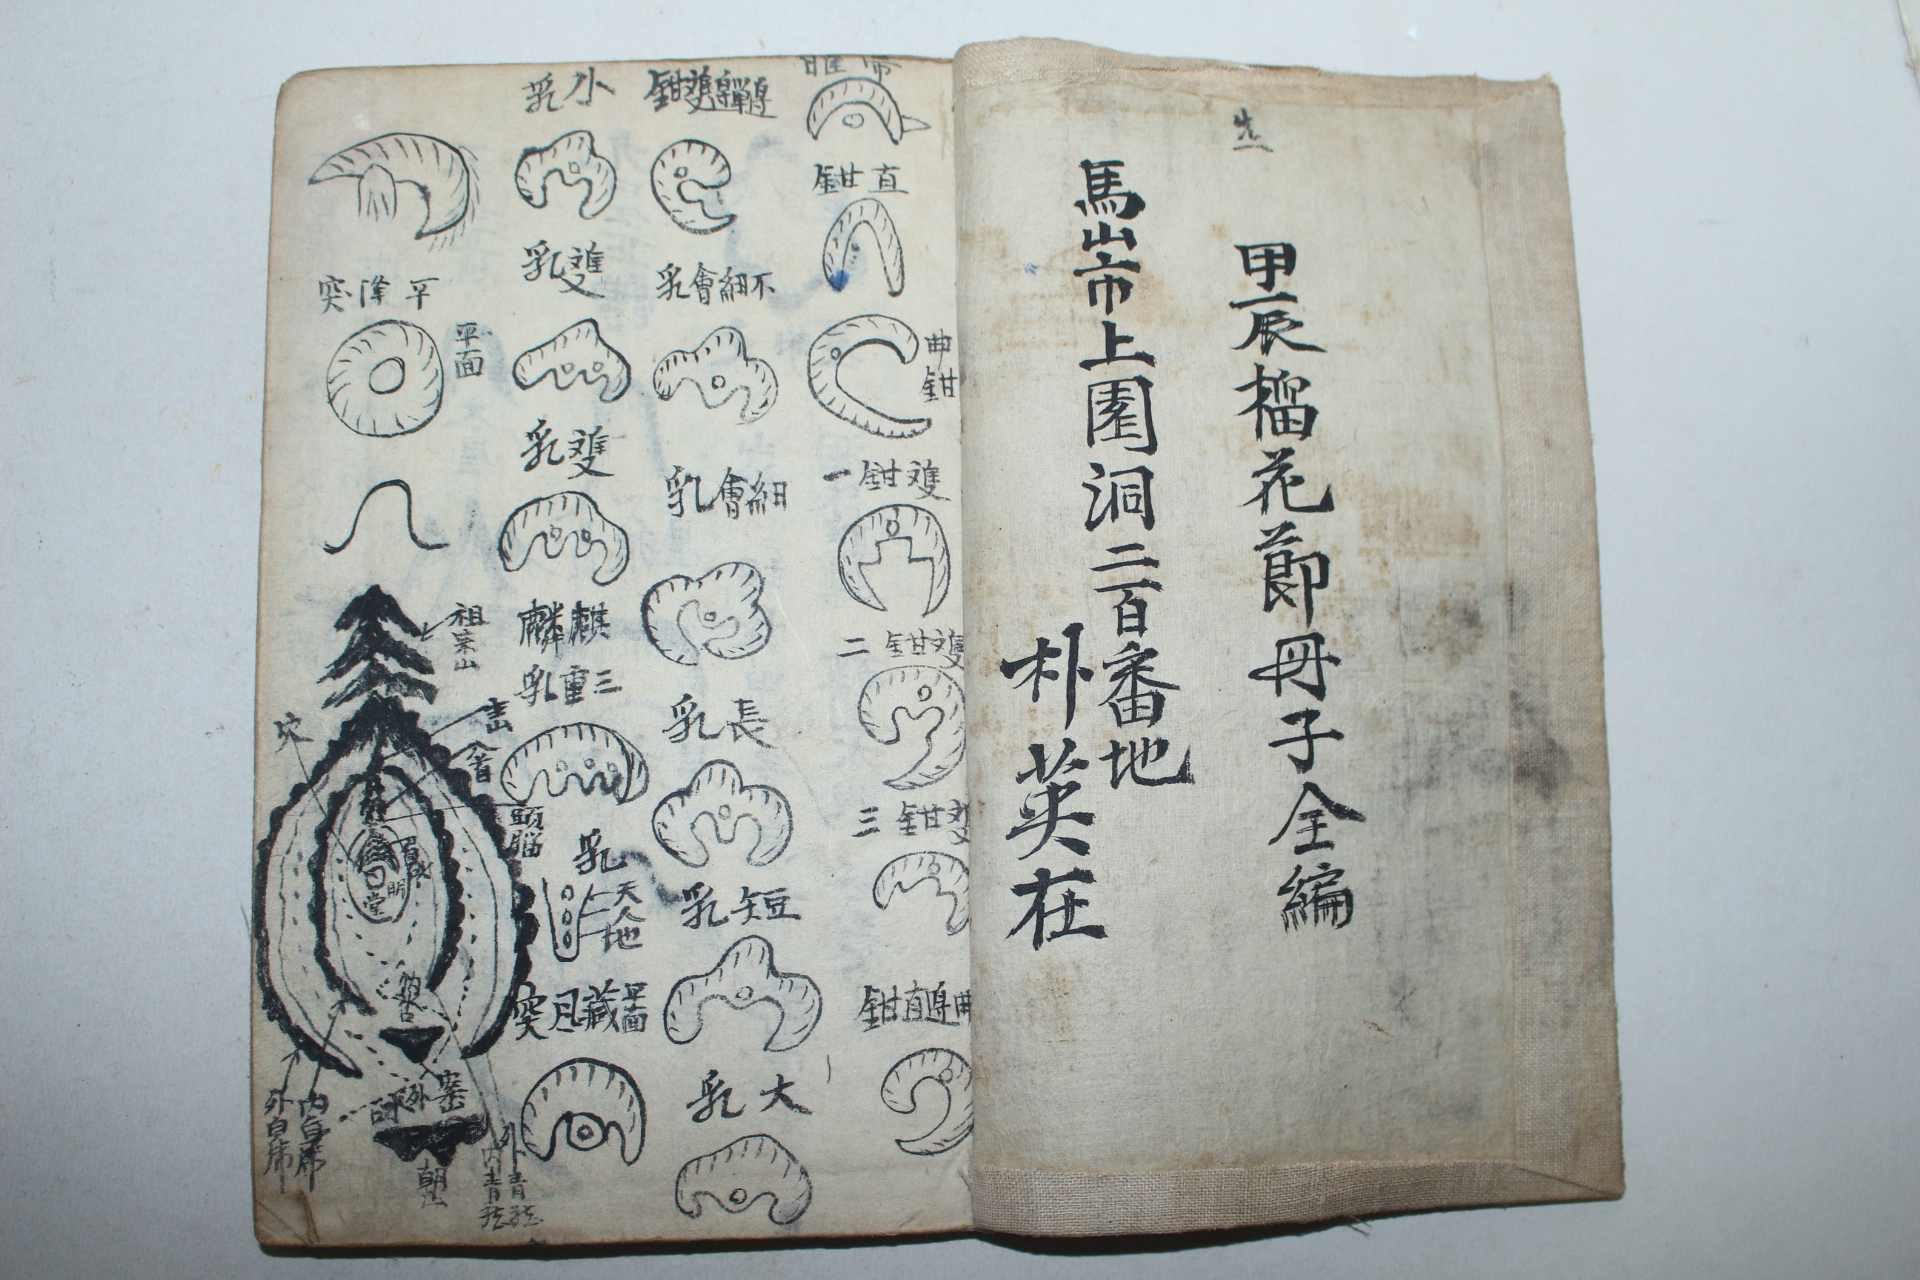 先
甲辰榴花節毋子全編
馬山市上園洞二百番地
朴英在
直鉗
曲鉗
雙鉗一
雙鉗二
雙鉗三
曲邊直鉗
邊單邊雙鉗
不細會乳
細會乳
長乳
短乳
大乳
小乳
雙乳
雙乳
麒麟
三重乳
乳
天
人
地
平面
藏風突
平洋突
平面
祖宗山
主山
入首
頭腦
穴
明堂
案山
朝山
內白虎
外白虎
內青龍
外青龍